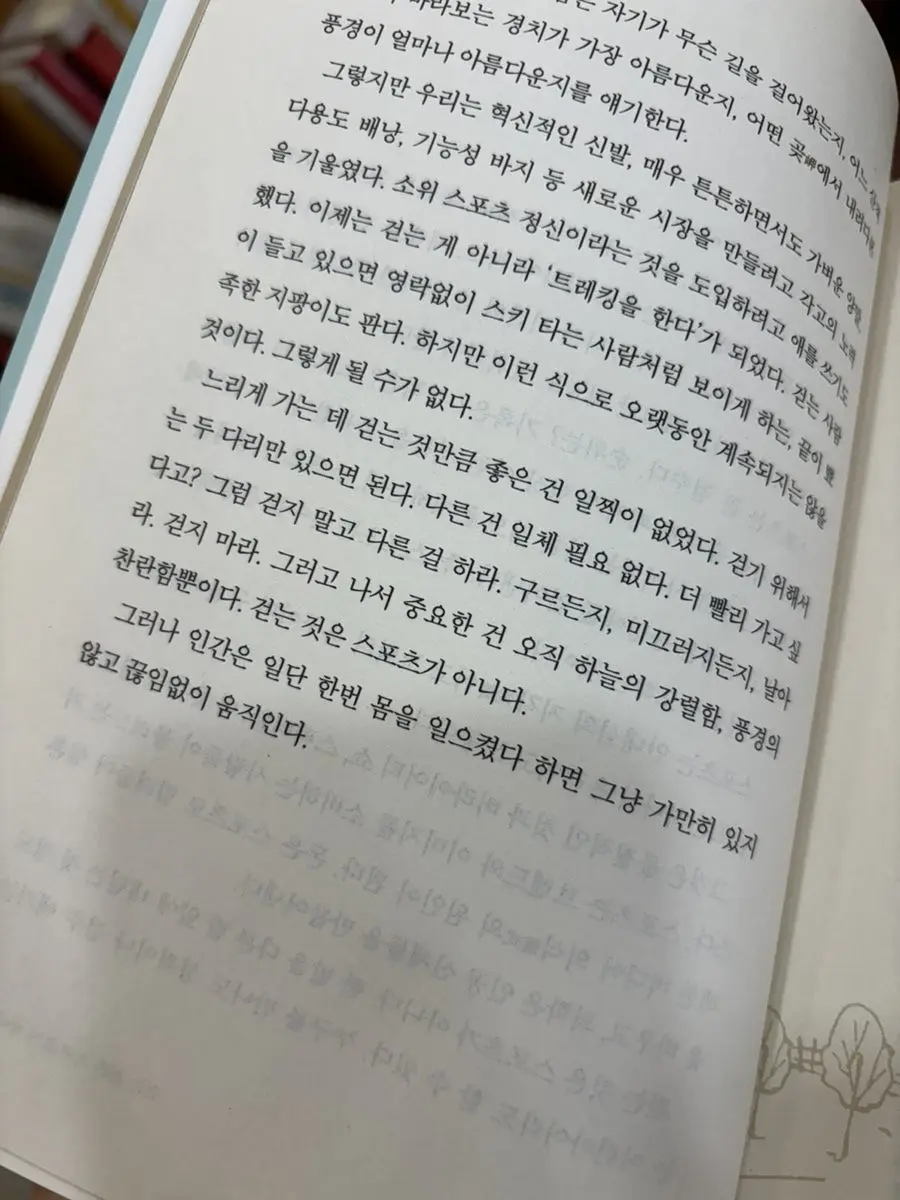 자기가 무슨 길을 걸어왔는지, 어느
바라보는 경치가 가장 아름다운지, 어떤 곶岬에서 내려다본
풍경이 얼마나 아름다운지를 얘기한다.
그렇지만 우리는 혁신적인 신발, 매우 튼튼하면서도 가벼운 양말,
다용도 배낭, 기능성 바지 등 새로운 시장을 만들려고 각고의 노력
을 기울였다. 소위 스포츠 정신이라는 것을 도입하려고 애를 쓰기도
했다. 이제는 걷는 게 아니라 ‘트레킹을 한다’가 되었다. 걷는 사람
이 들고 있으면 영락없이 스키 타는 사람처럼 보이게 하는, 끝이 뾰
족한 지팡이도 판다. 하지만 이런 식으로 오랫동안 계속되지는 않을
것이다. 그렇게 될 수가 없다.
느리게 가는 데 걷는 것만큼 좋은 건 일찍이 없었다. 걷기 위해서
는 두 다리만 있으면 된다. 다른 건 일체 필요 없다. 더 빨리 가고 싶
다고? 그럼 걷지 말고 다른 걸 하라. 구르든지, 미끄러지든지, 날아
라. 걷지 마라. 그러고 나서 중요한 건 오직 하늘의 강렬함, 풍경의
찬란함뿐이다. 걷는 것은 스포츠가 아니다.
그러나 인간은 일단 한번 몸을 일으켰다 하면 그냥 가만히 있지
않고 끊임없이 움직인다.